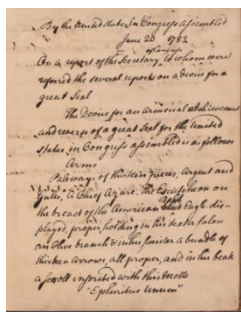 By the United States in Congress Assembled
June 20 1782
of Congress
On a report of the Secretary, to whom were
referred the several reports on a device for a
great Seal
The Device for an Armorial Atchievement
and reverse of a great Seal for the United
States, in Congress assembled is as follows
Arms
Paleways of thirteen pieces, Argent and
Gules, a Chief Azure. The Escutcheon on
the breast of the American Eagle dis-
played, proper, holding in his dexter talon
an Olive branch & in his sinister a bundle of
thirteen Arrows, all proper, and in his beak
a scroll inscribed with this Motto
"E pluribus Unum"